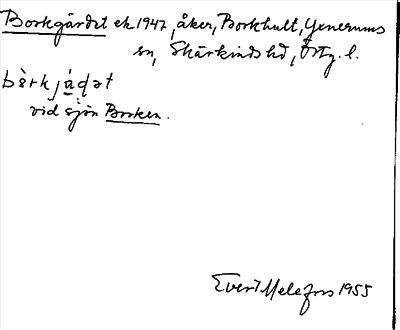 Borkgärdet ek. 1947, åker, Borkhult, Yxnerums
sn, Skärkinds hd, Östg. l.
vid sjön Borken.
Evert Melefors 1955